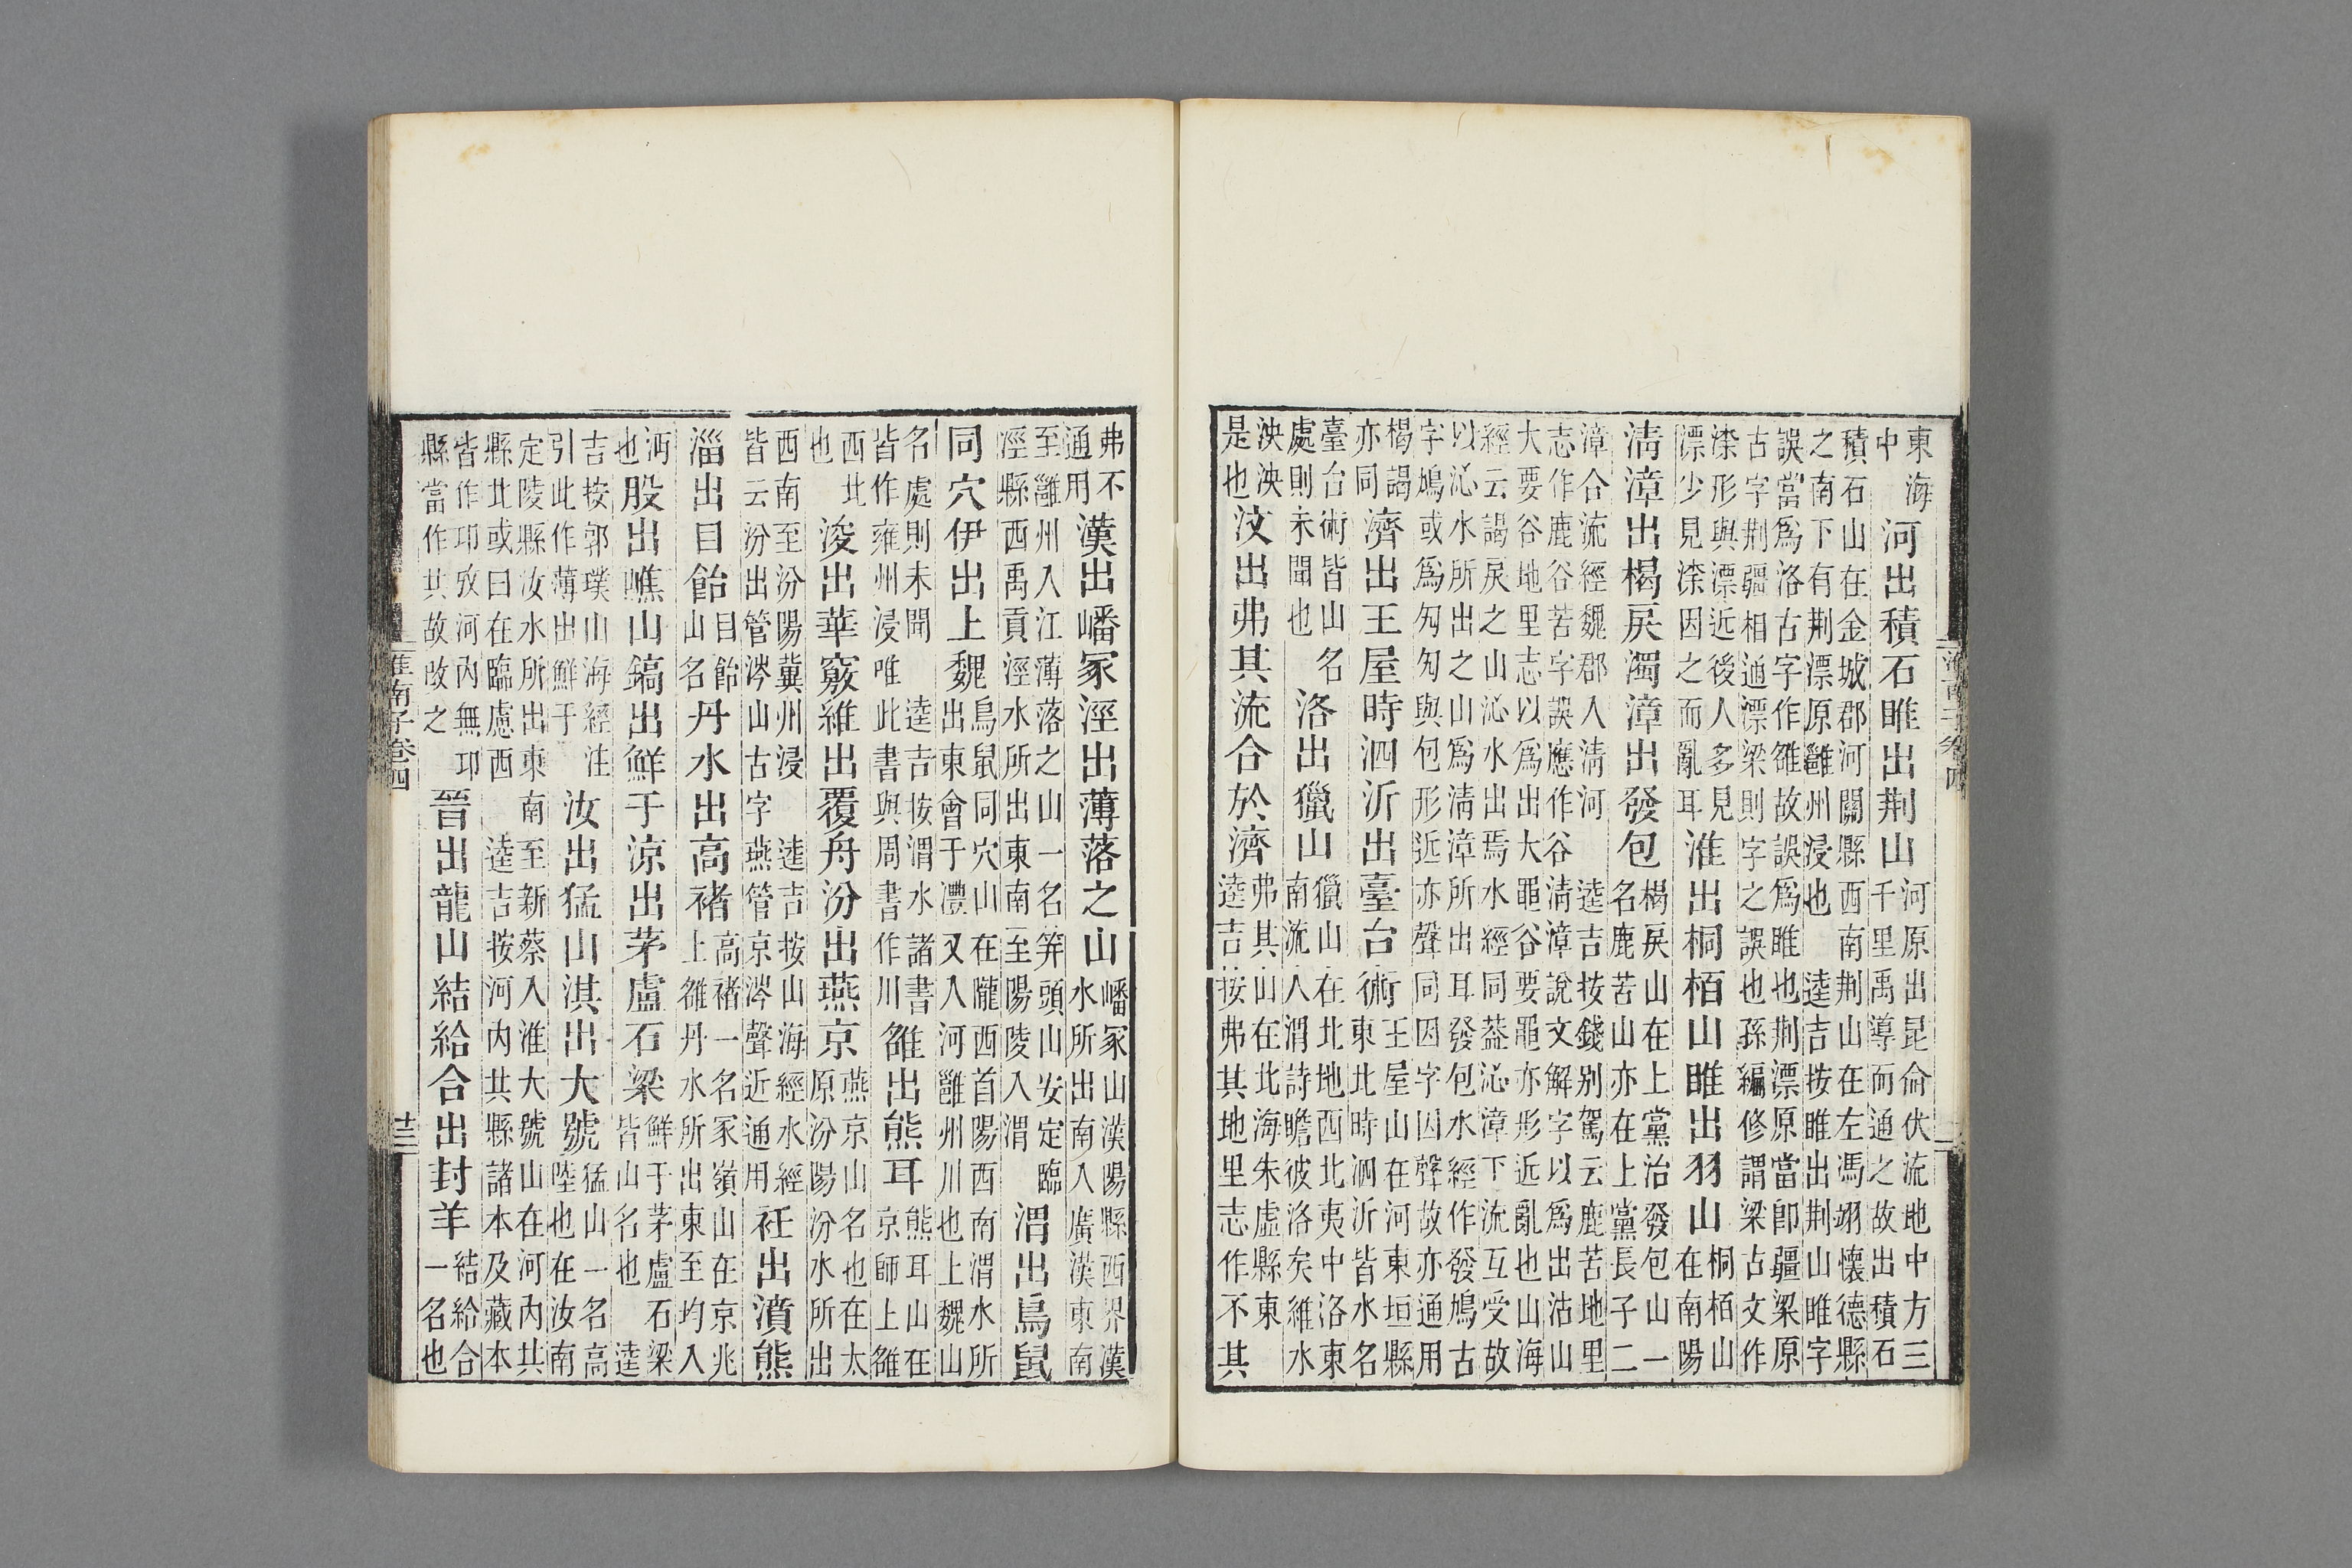 東海
中
河出積石睢出荆山
河原出昆侖伏流地中方三
千里禹導而通之故出積石
積石山在金城郡河關縣西南荆山在左馮翊懷德縣
之南下有荆漂原雝州浸也 逵吉按睢出荆山睢字
誤當爲洛古字作雒故誤爲睢也荆漂原當卽疆梁原
古字荆疆相通漂梁則字之誤也孫編修謂梁古文作
㳿形與漂近後人多見
漂少見㳿因之而亂耳
淮出桐栢山睢出羽山
桐栢山
在南陽
清漳出楬戾濁漳出發包
楬戾山在上黨治發包山一
名鹿苦山亦在上黨長子二
漳合流經魏郡入清河 逵吉按錢别駕云鹿苦地里
志作鹿谷苦字誤應作谷清漳說文解字以爲出沾山
大要谷地里志以爲出大黽谷要黽亦形近亂也山海
經云謁戾之山沁水出焉水經同葢沁漳下流互受故
以沁水所出之山爲清漳所出耳發包水經作發鳩古
字鳩或爲勼勼與包形近亦聲同因字因聲故亦通用
楬謁
亦同
濟出王屋時泗沂出臺台術
王屋山在河東垣縣
東北時泗沂皆水名
臺台術皆山名
處則未聞也
洛出獵山
獵山在北地西北夷中洛東
南流入渭詩瞻彼洛矣維水
泱泱
是也
汶出弗其流合於濟
弗其山在北海朱虛縣東
逵吉按弗其地里志作不其
弗不
通用
漢出嶓冢涇出薄落之山
嶓冢山漢陽縣西界漢
水所出南入廣漢東南
至雝州入江薄落之山一名笄頭山安定臨
涇縣西禹貢涇水所出東南至陽陵入渭
渭出鳥鼠
同穴伊出上魏
鳥鼠同穴山在隴西首陽西南渭水所
出東會于灃又入河雝州川也上魏山
名處則未聞 逵吉按渭水諸書
皆作雍州浸唯此書與周書作川
雒出熊耳
熊耳山在
京師上雒
西北
也
浚出華竅維出覆舟汾出燕京
燕京山名也在太
原汾陽汾水所出
西南至汾陽冀州浸 逵吉按山海經水經
皆云汾出管涔山古字燕管京涔聲近通用
衽出濆熊
淄出目飴
目飴
山名
丹水出高褚
高褚一名冢嶺山在京兆
上雒丹水所出東至均入
沔
也
股出嶕山鎬出鮮于涼出茅盧石梁
鮮于茅盧石梁
皆山名也 逵
吉按郭璞山海經注
引此作薄出鮮于
汝出猛山淇出大號
猛山一名高
陸也在汝南
定陵縣汝水所出東南至新蔡入淮大號山在河內共
縣北或曰在臨慮西 逵吉按河內共縣諸本及藏本
皆作邛攷河內無邛
縣當作共故改之
晉出龍山結給合出封羊
結給合
一名也
淮南子卷四
十三